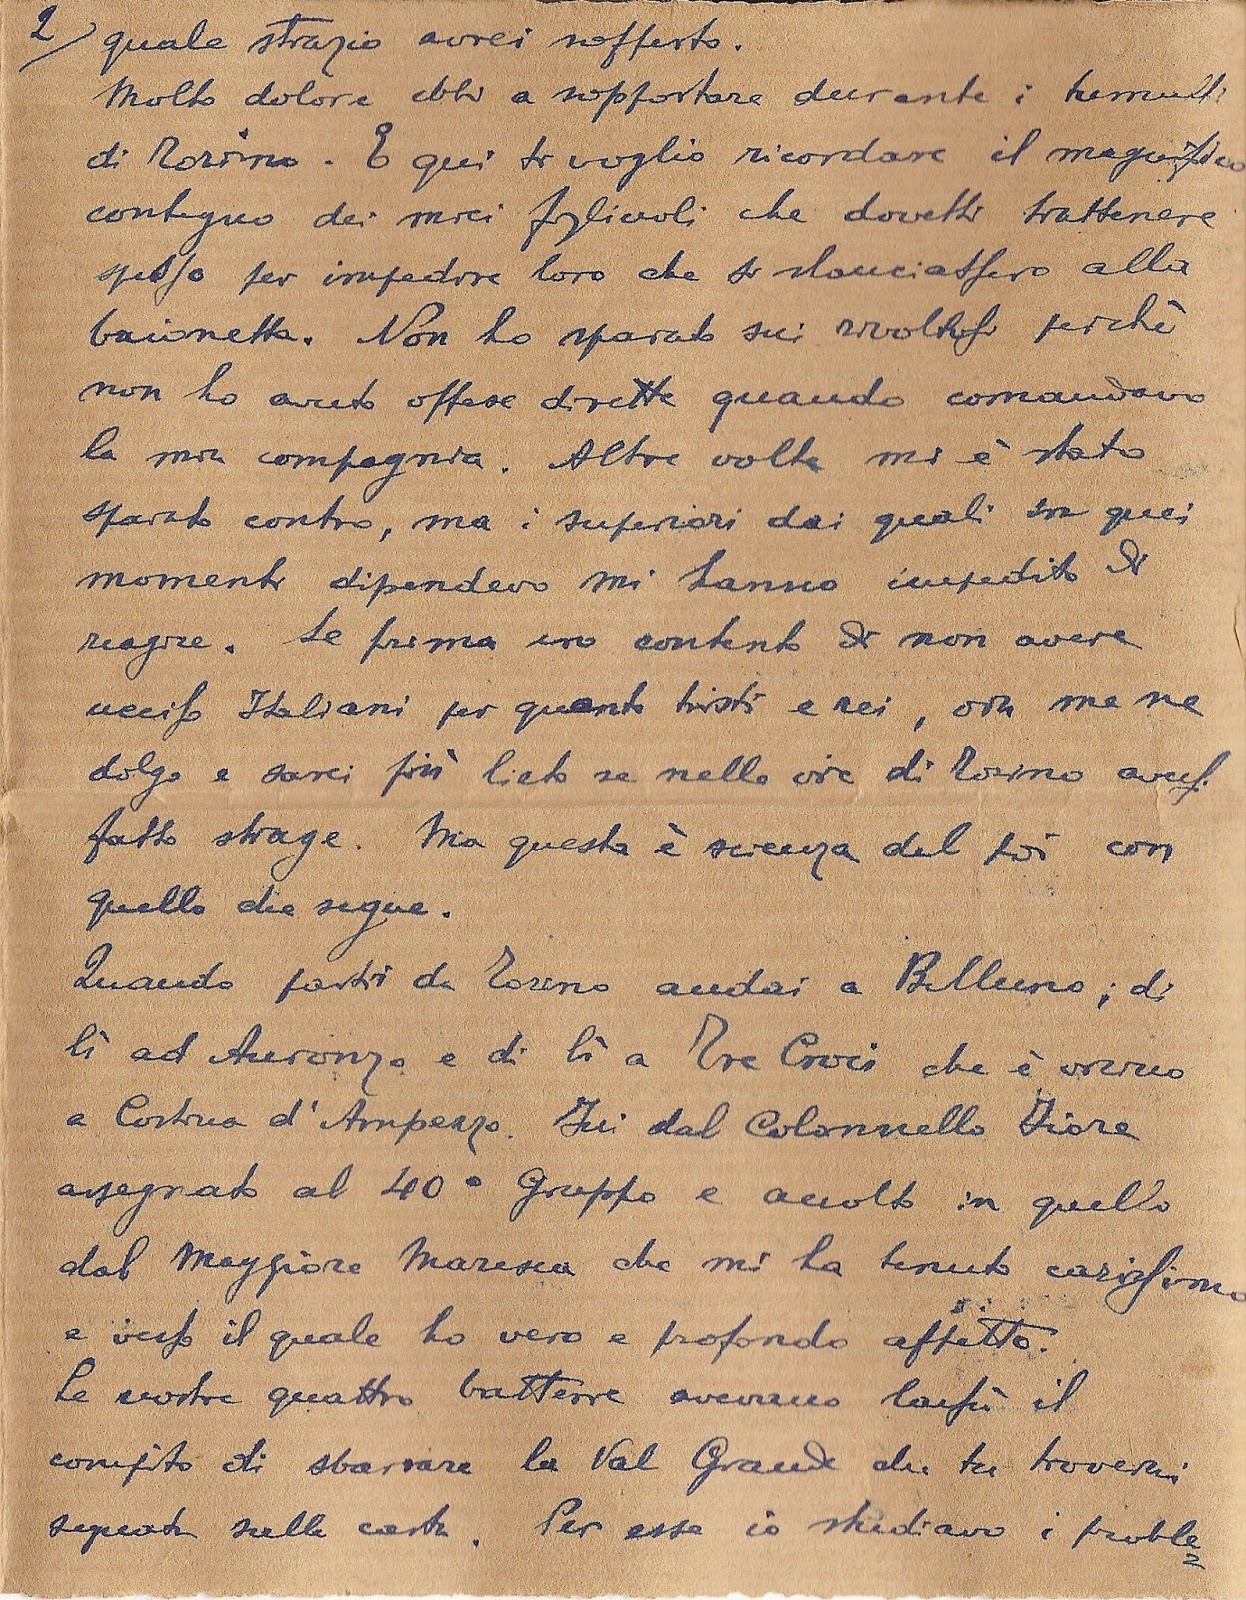 2/ quale strazio avrei sofferto.
Molto dolore ebbi a sopportare durante i tumulti
di Torino. E qui ti voglio ricordare il magnifico
contegno dei miei figliuoli che dovetti trattenere
spesso per impedire loro che si slanciassero alla
baionetta. Non ho sparato sui rivoltosi perchè
non ho avuto offese dirette quando comandavo
la mia compagnia. Altre volte mi è stato
sparato contro, ma i superiori dai quali in quei
momenti dipendevo mi hanno impedito di
reagire. Se prima ero contento di non avere
ucciso Italiani per quanto tristi e rei, ora me ne
dolgo e sarei più lieto se nelle vie di Torino avessi
fatto strage. Ma questa è scienza del poi con
quello che segue.
Quando partii da Torino andai a Belluno; di
lì ad Auronzo e di lì a Tre Croci che è vicino
a Cortina d'Ampezzo. Fui dal Colonnello Fiore
assegnato al 40° Gruppo e accolto in quello
dal Maggiore Maresca che mi ha tenuto carissimo
e verso il quale ho vero e profondo affetto.
Le nostre quattro batterie avevano lassù il
compito di sbarrare la Val Grande che tu troverai
segnata sulla carta. Per esse io studiavo i proble=